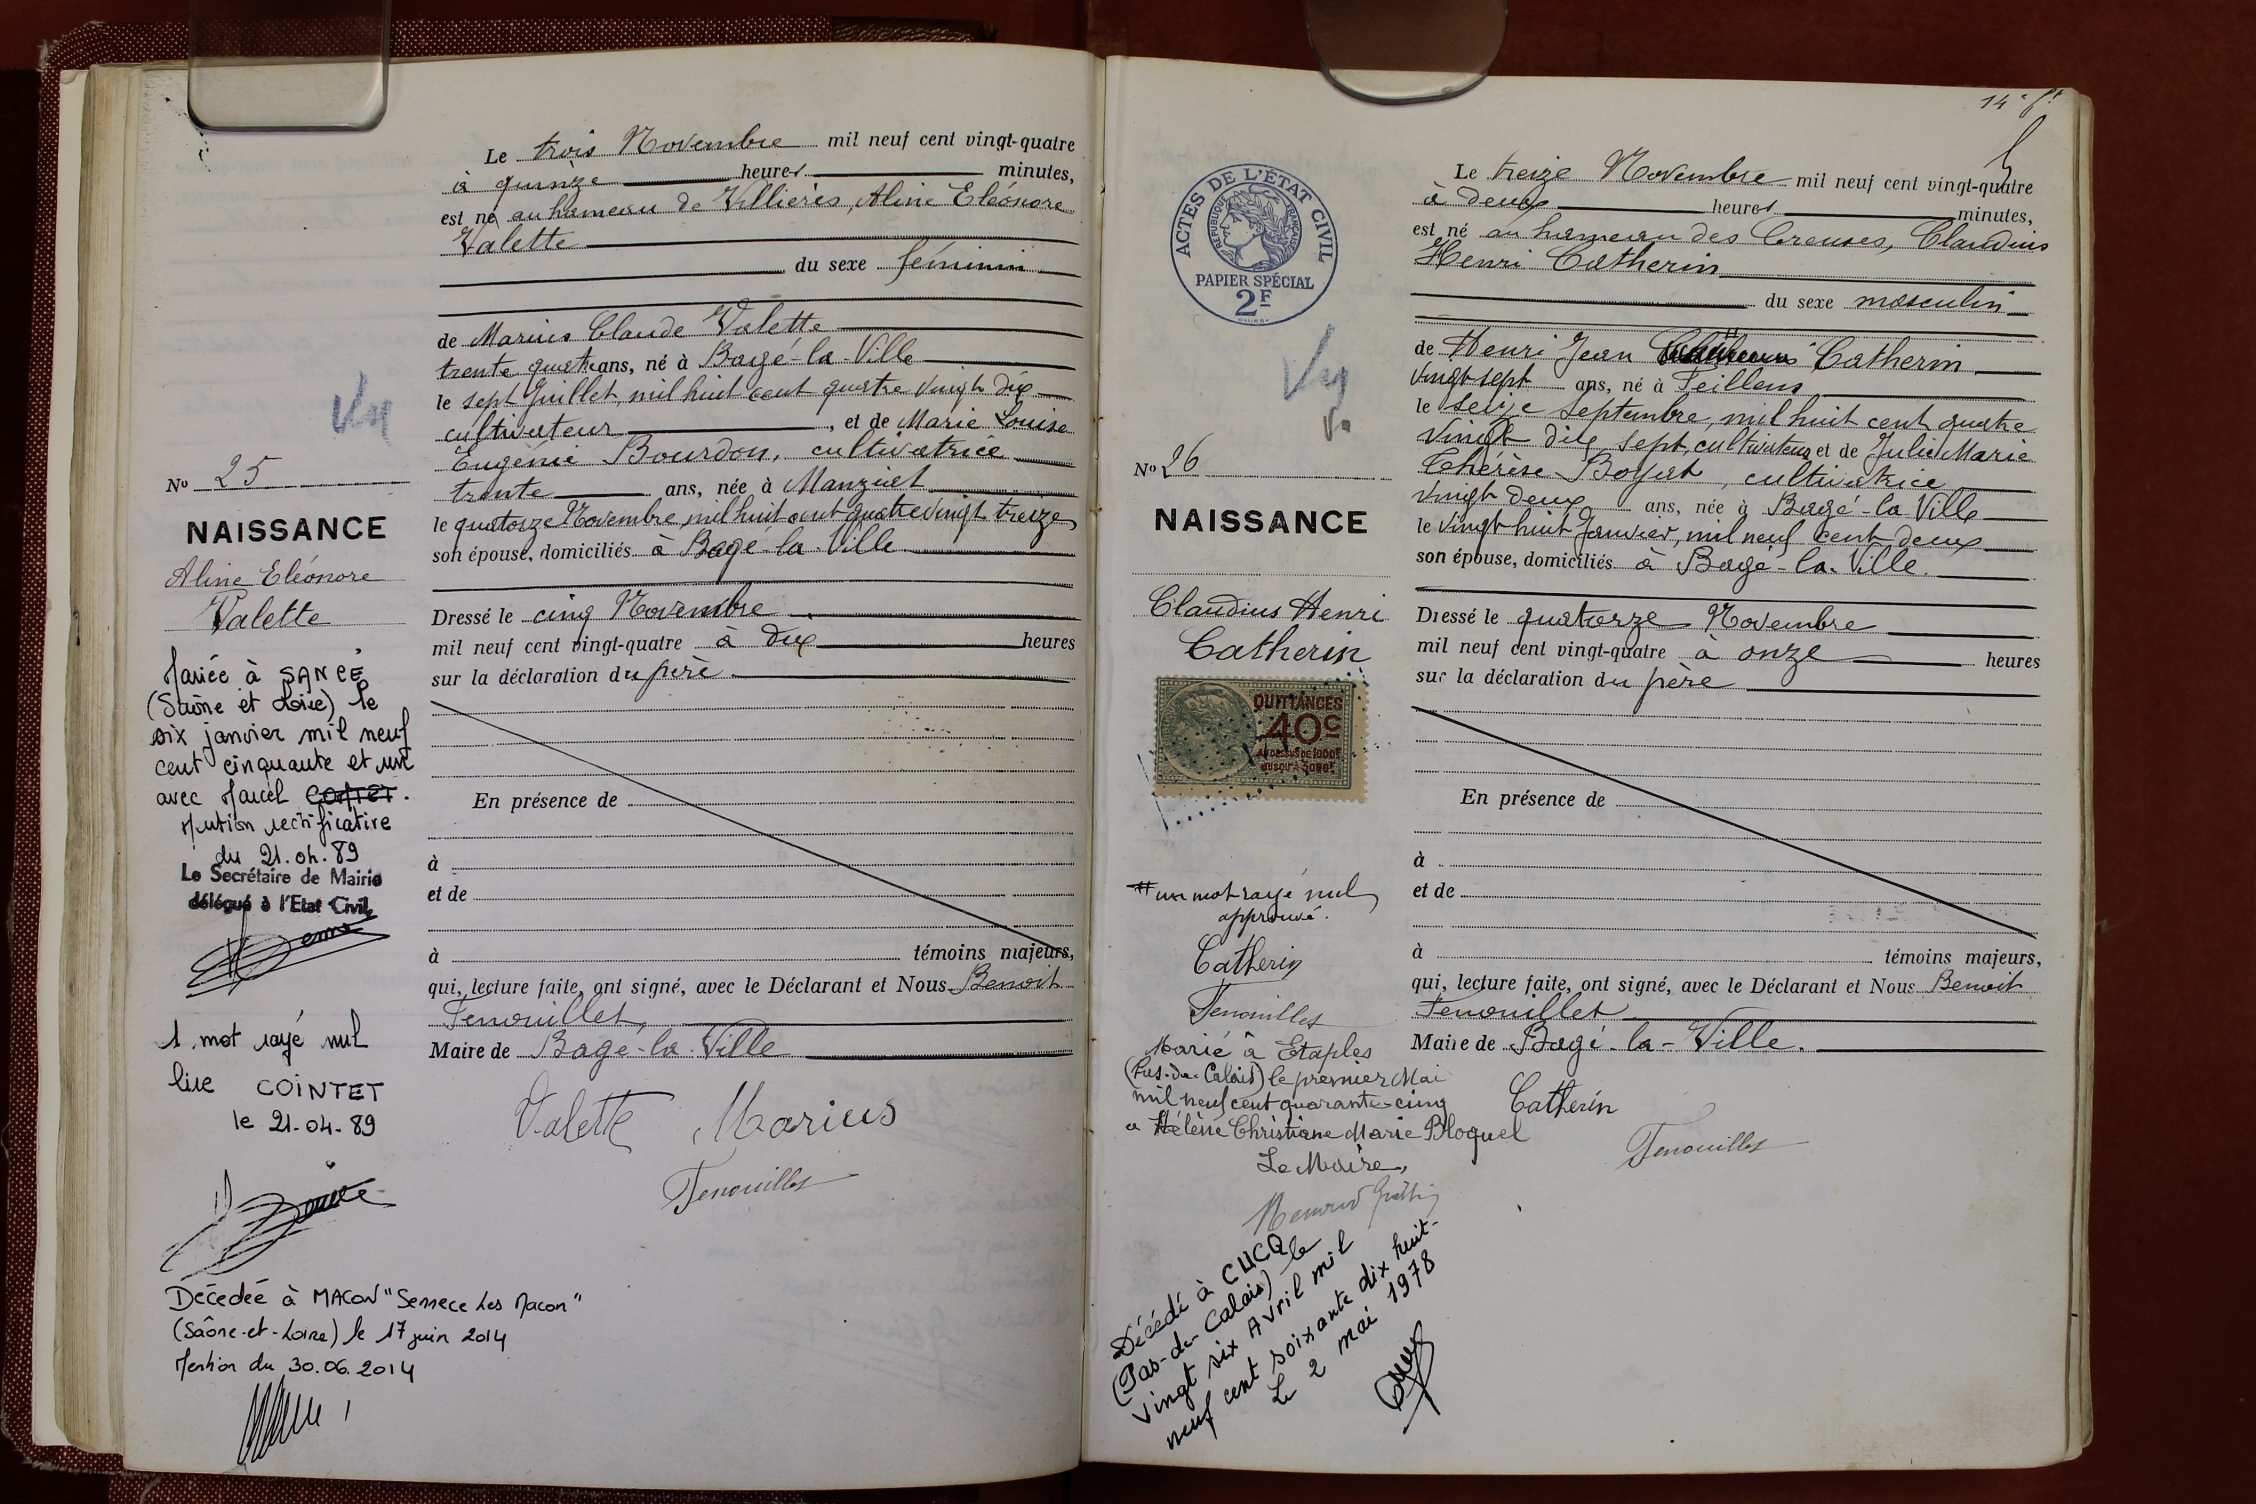 Le trois Novembre mil neuf cent vingt-quatre
à quinze heures minutes,
est né au hameau de Villières, Aline Eléonore
Valette
du sexe féminin
de Marius Claude Valette
trente quatre ans, né à Bagé-la-Ville
le sept Juillet, mil huit cent quatre vingt dix
cultivateur, et de Marie Louise
Eugénie Bourdon, cultivatrice
trente ans, née à Manziat
le quatorze Novembre, mil huit cent quatre vingt treize
son épouse, domiciliés à Bagé-la-Ville
Dressé le cinq Novembre
mil neuf cent vingt-quatre à dix heures
sur la déclaration du père.
En présence de
à
et de
à témoins majeurs,
qui, lecture faite, ont signé, avec le Déclarant et Nous Benoit
Fenouillet,
Maire de Bagé-la-Ville
Valette Marius
Fenouillet
No 25
NAISSANCE
Aline Eléonore
Valette
Mariée à SANCÉ
(Saône et Loire) le
six janvier mil neuf
cent cinquante et un
avec Marcel CONTET.
Mention rectificative
du 21.04.89
Le Secrétaire de Mairie
délégué à l'Etat Civil,
1 mot rayé nul
lire COINTET
le 21-04-89
Décédée à MACON "Sennece Les Macon"
(Saône-et-Loire) le 17 juin 2014
Mention du 30.06.2014
14e ft
Le treize Novembre mil neuf cent vingt-quatre
à deux heures minutes,
est né au hameau des Creuses, Claudius
Henri Catherin
du sexe masculin
de Henri Jean Catherin
vingt sept ans, né à Feillens
le seize septembre, mil huit cent quatre
vingt dix sept, cultivateur et de Julie Marie
Thérèse Boyat, cultivatrice
vingt deux ans, née à Bagé-la-Ville
le vingt huit Janvier, mil neuf cent deux
son épouse, domiciliés à Bagé-la-Ville.
Dressé le quatorze Novembre
mil neuf cent vingt-quatre à onze heures
sur la déclaration du père
En présence de
à
et de
à témoins majeurs,
qui, lecture faite, ont signé, avec le Déclarant et Nous Benoit
Fenouillet
Maire de Bagé-la-Ville.
Catherin
Fenouillet
ACTES DE L'ÉTAT CIVIL
REPUBLIQUE FRANÇAISE
PAPIER SPÉCIAL
2F
No 26
NAISSANCE
Claudius Henri
Catherin
QUITTANCES
40c
AU DESSUS DE 1000F
JUSQU'À 3000F
# un mot rayé nul
approuvé.
Catherin
Fenouillet
Marié à Etaples
(Pas-de-Calais) le premier Mai
mil neuf cent quarante-cinq
a Hélène Christiane Marie Bloquel
Le Maire,
Décédé à CUCQ le
(Pas-de-Calais)
vingt six Avril mil
neuf cent soixante dix huit-
Le 2 mai 1978